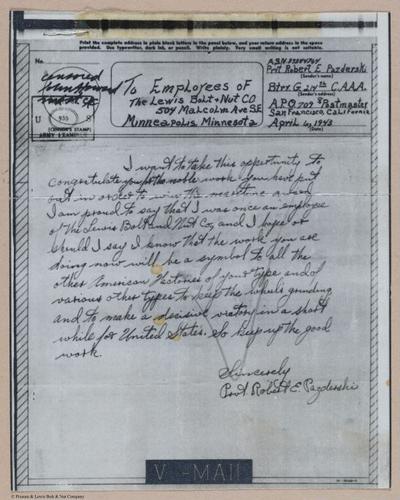 Print the complete address in plain block letters in the panel below, and your return address in the space
provided. Use typewriter, dark ink, or pencil. Write plainly. Very small writing is not suitable.
No.
censored
U S
(CENSOR'S STAMP)
To Employees of
The Lewis Bolt & Nut Co
504 Malcolm Ave S.E
Minneapolis Minnesota
Pvt Robert E. Pazderski
(Sender's name)
Btry. G. 214th C.A.A.A.
(Sender's address)
A.P.O. 709 % Postmaster
San Francisco, California
April 6, 1943
(Date)
I want to take this opportunity to
congratulate you for the noble work you have put
out in order to win the
I am proud to say that I was once an employee
of the Lewis Bolt and Nut Co, and I hope or
should I say I know that the work you are
doing now will be a symbol to all the
other American Factories of your type and of
various other types to keep the wheels grinding
and to make a decisive victory in a short
while for United States. So keep up the good
work.
Sincerely
Pvt. Robert E. Pazderski
V - MAIL
© Pioneer & Lewis Bolt & Nut Company